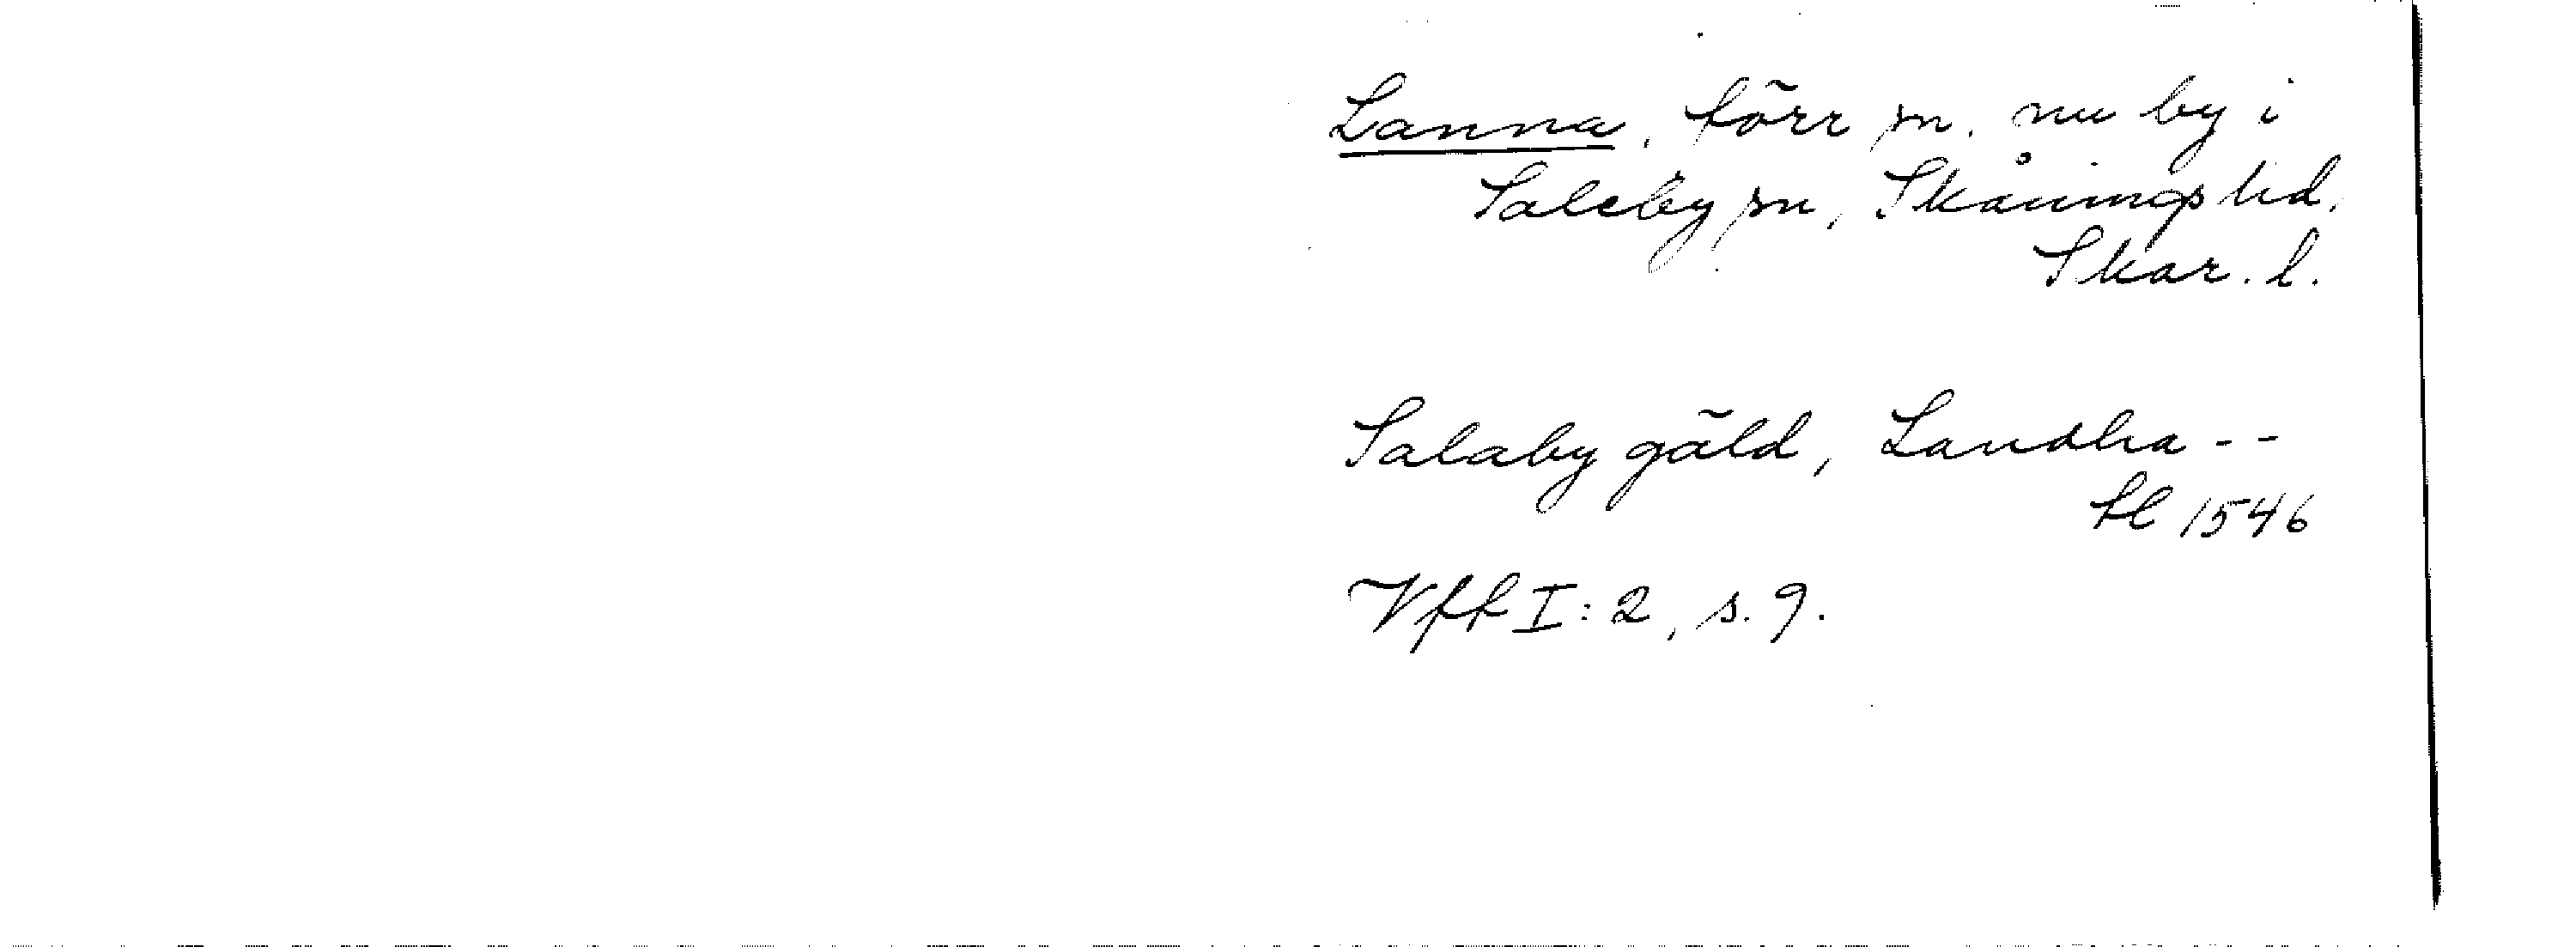 Lanna, förr sn. nu by i
Saleby sn, Skånings hd,
Skar. l.
Salaby gäld, Landha --
fl 1546
Vff I: 2, s. 9.